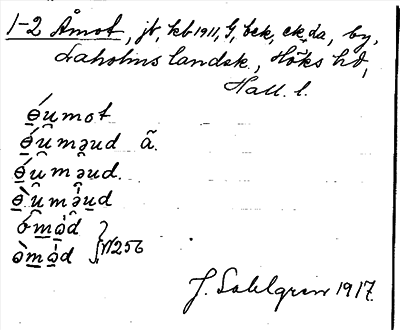 1-2 Åmot, jt, kb 1911, G, bek, ek, da, by,
Laholms landsk., Höks hd,
Hall. l.
ǿu̯mot
ǿu̯məud ã.
ǿu̯məud.
ø̀u̯mə̀ud
óməd
òmə̀d } N256
J. Sahlgren 1917.